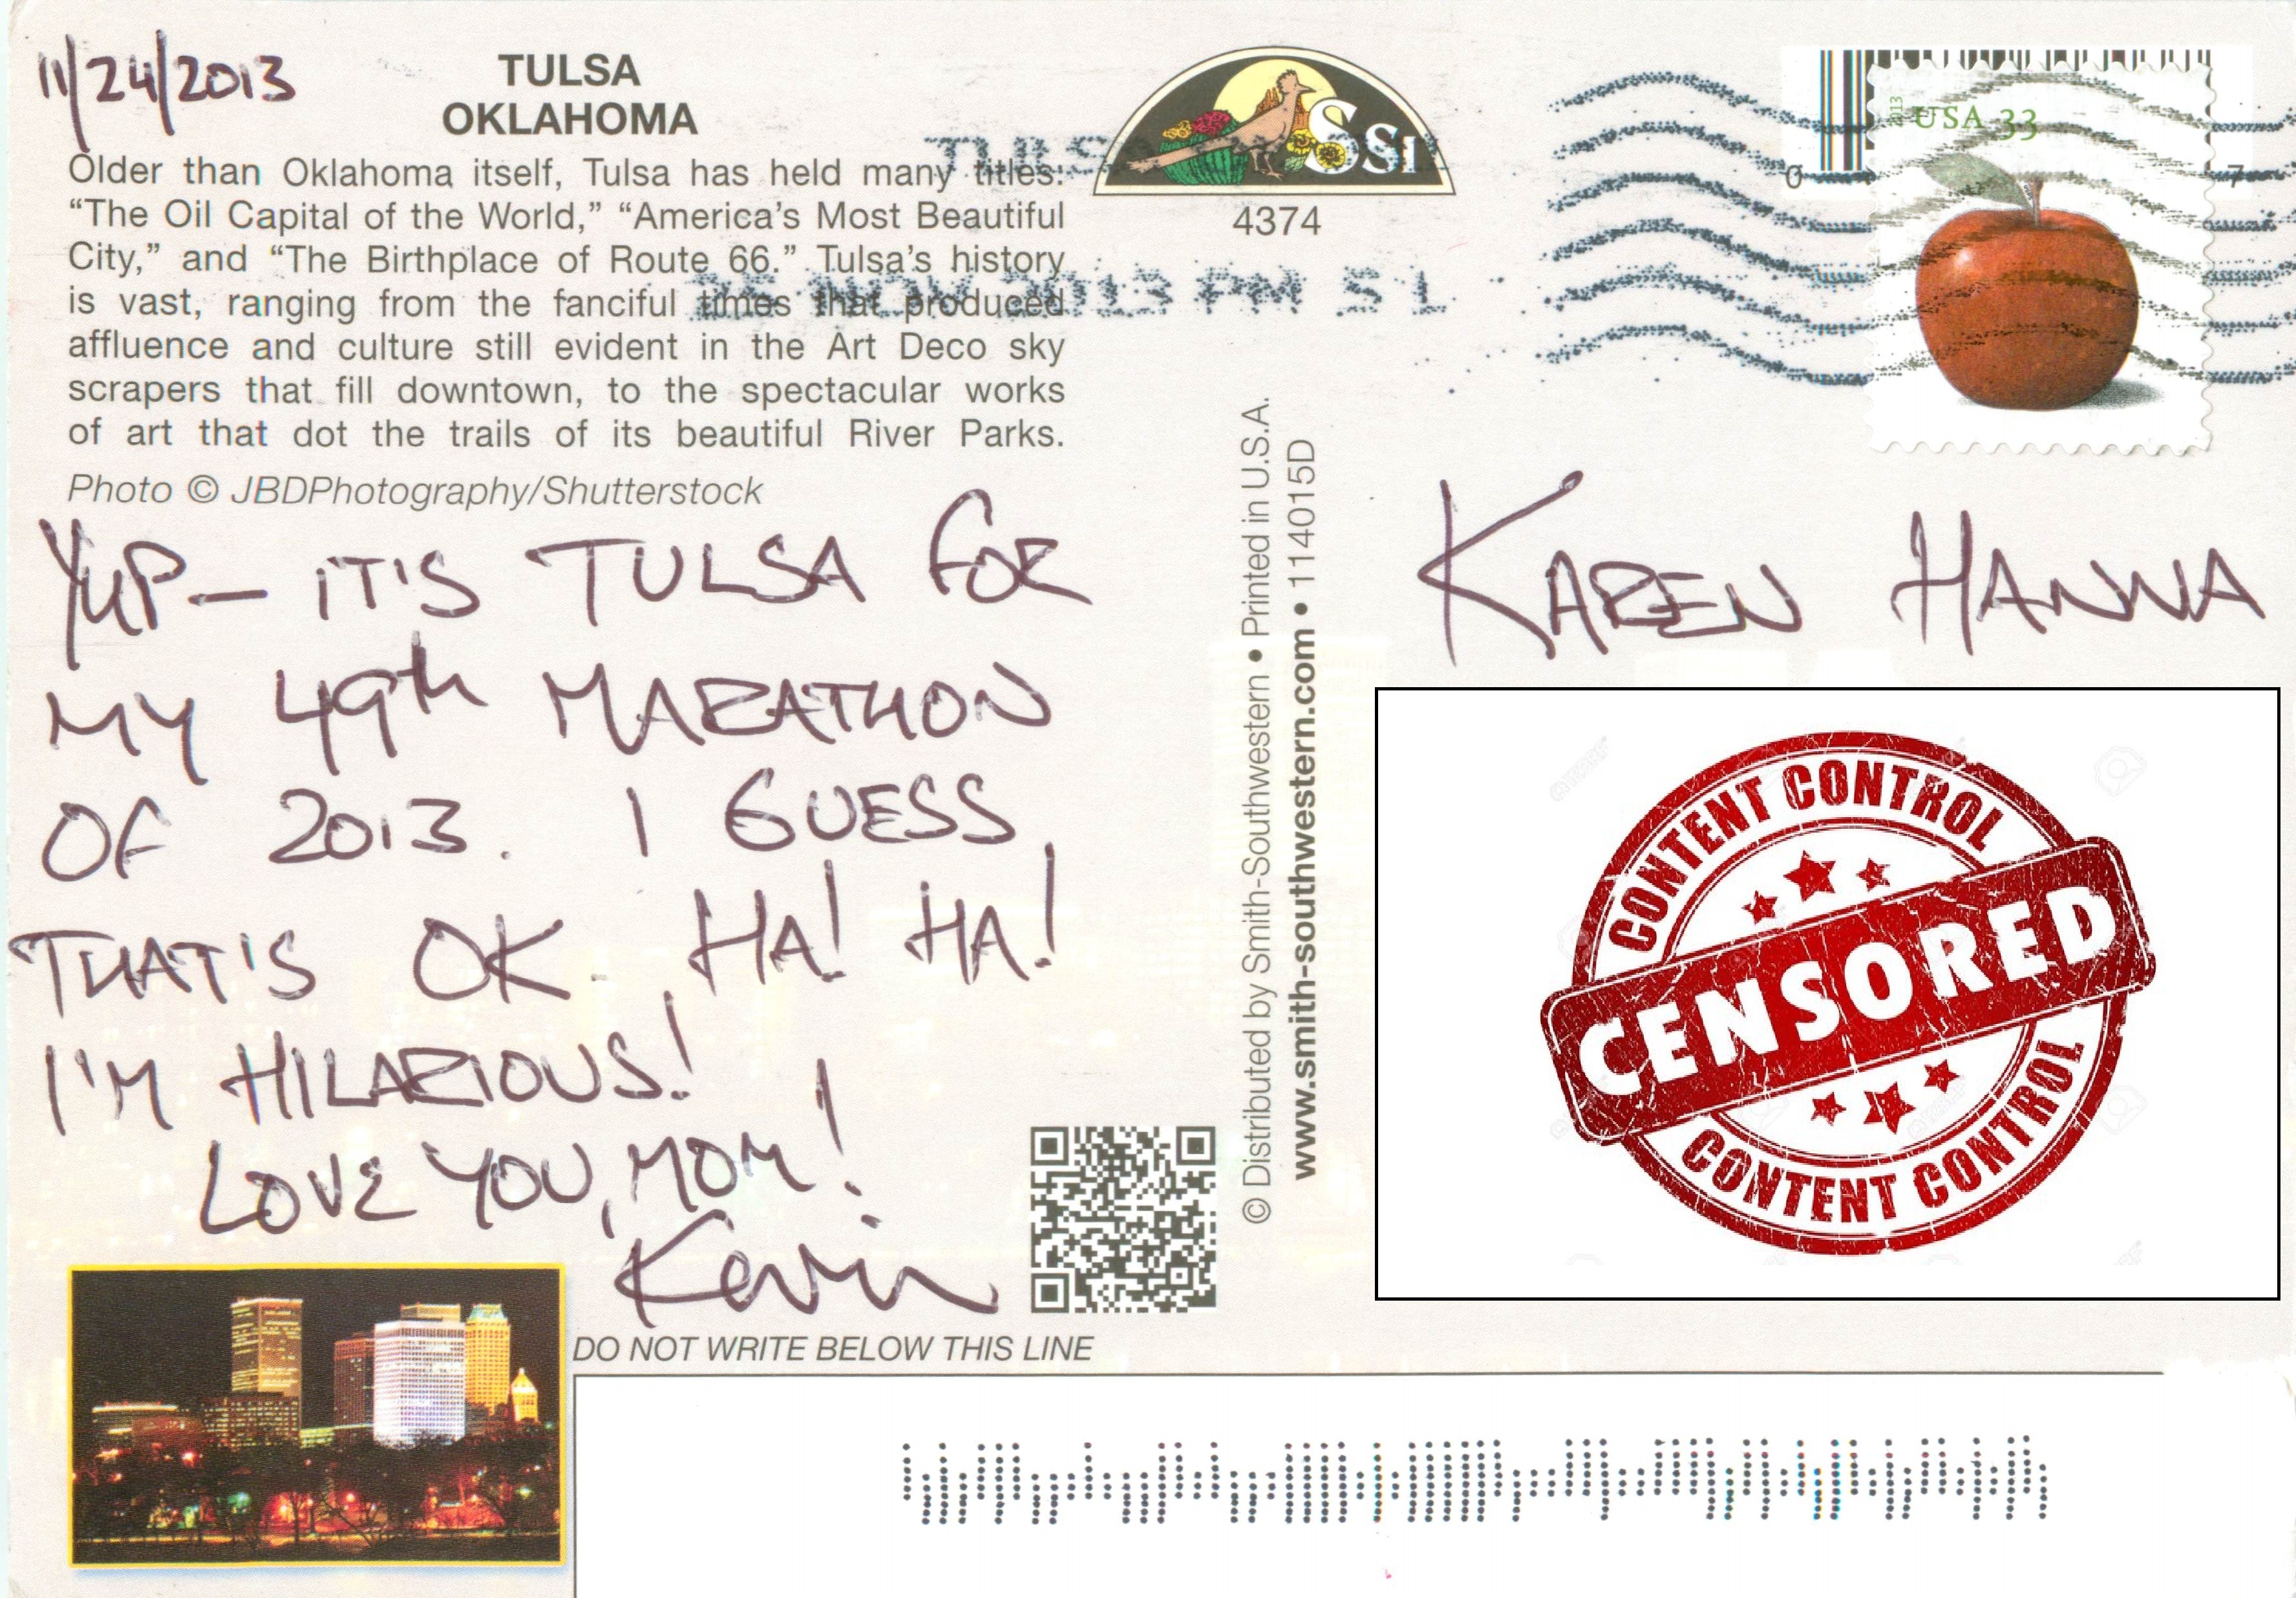 11/24/2013
TULSA
OKLAHOMA
Older than Oklahoma itself, Tulsa has held many titles:
“The Oil Capital of the World,” “America's Most Beautiful
City,” and “The Birthplace of Route 66.” Tulsa's history
is vast, ranging from the fanciful times that produced
affluence and culture still evident in the Art Deco sky
scrapers that fill downtown, to the spectacular works
of art that dot the trails of its beautiful River Parks.
Photo © JBDPhotography/Shutterstock
YUP- IT'S TULSA FOR
MY 49th MARATHON
OF 2013. I GUESS
THAT'S OK. HA! HA!
I'M HILARIOUS!
LOVE YOU, MOM!
Kevin
DO NOT WRITE BELOW THIS LINE
SSI
4374
TULSA
NOV 2013 PM 5 L
© Distributed by Smith-Southwestern • Printed in U.S.A.
www.smith-southwestern.com • 114015D
2013
USA 33
0 7
KAREN HANNA
CONTENT CONTROL
CENSORED
CONTENT CONTROL